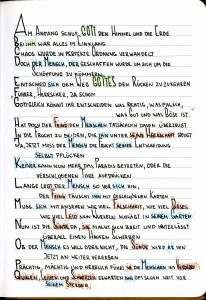 Am Anfang schuf Gott den Himmel und die Erde
Bei ihm war alles im Einklang
Chaos wurde in perfekte Ordnung verwandelt
Doch der Mensch, der geschaffen wurde um sich um die
Schöpfung zu kümmern,
Entschied sich dem Weg Gottes den Rücken zu zukehren
Führer, Herrscher, ja schon
Gottgleich könnt ihr entscheiden was
was gut und was böse ist.
Hat doch der Feind den Menschen tatsächlich davon überzeugt
In die Frucht zu beißen, die ihn unter seine Herrschaft bringt
Ja, jetzt muss der Mensch die Frucht seiner Entscheidung
selbst pflücken
Keiner kann nun mehr das Paradies betreten, oder die
verschlossenen Tore aufdrücken
Lange lebt der Mensch so vor sich hin,
der Feind täuscht ihn mit gezinkten Karten
Muss sich mit ansehen wie viel Falschheit, wie viel Böses
wie viel Leid nun wuchert in seinem Garten
Nun ist die Sünde da, sie macht sich breit und unterlässt
überall einen Haufen Scherben
Ob der Mensch es will oder nicht, die Sünde wird er von
jetzt an weiter vererben
Prächtig, mächtig und herrlich führt sie die Menschen ins
Qualen, Leiden und
seinem Sterben.